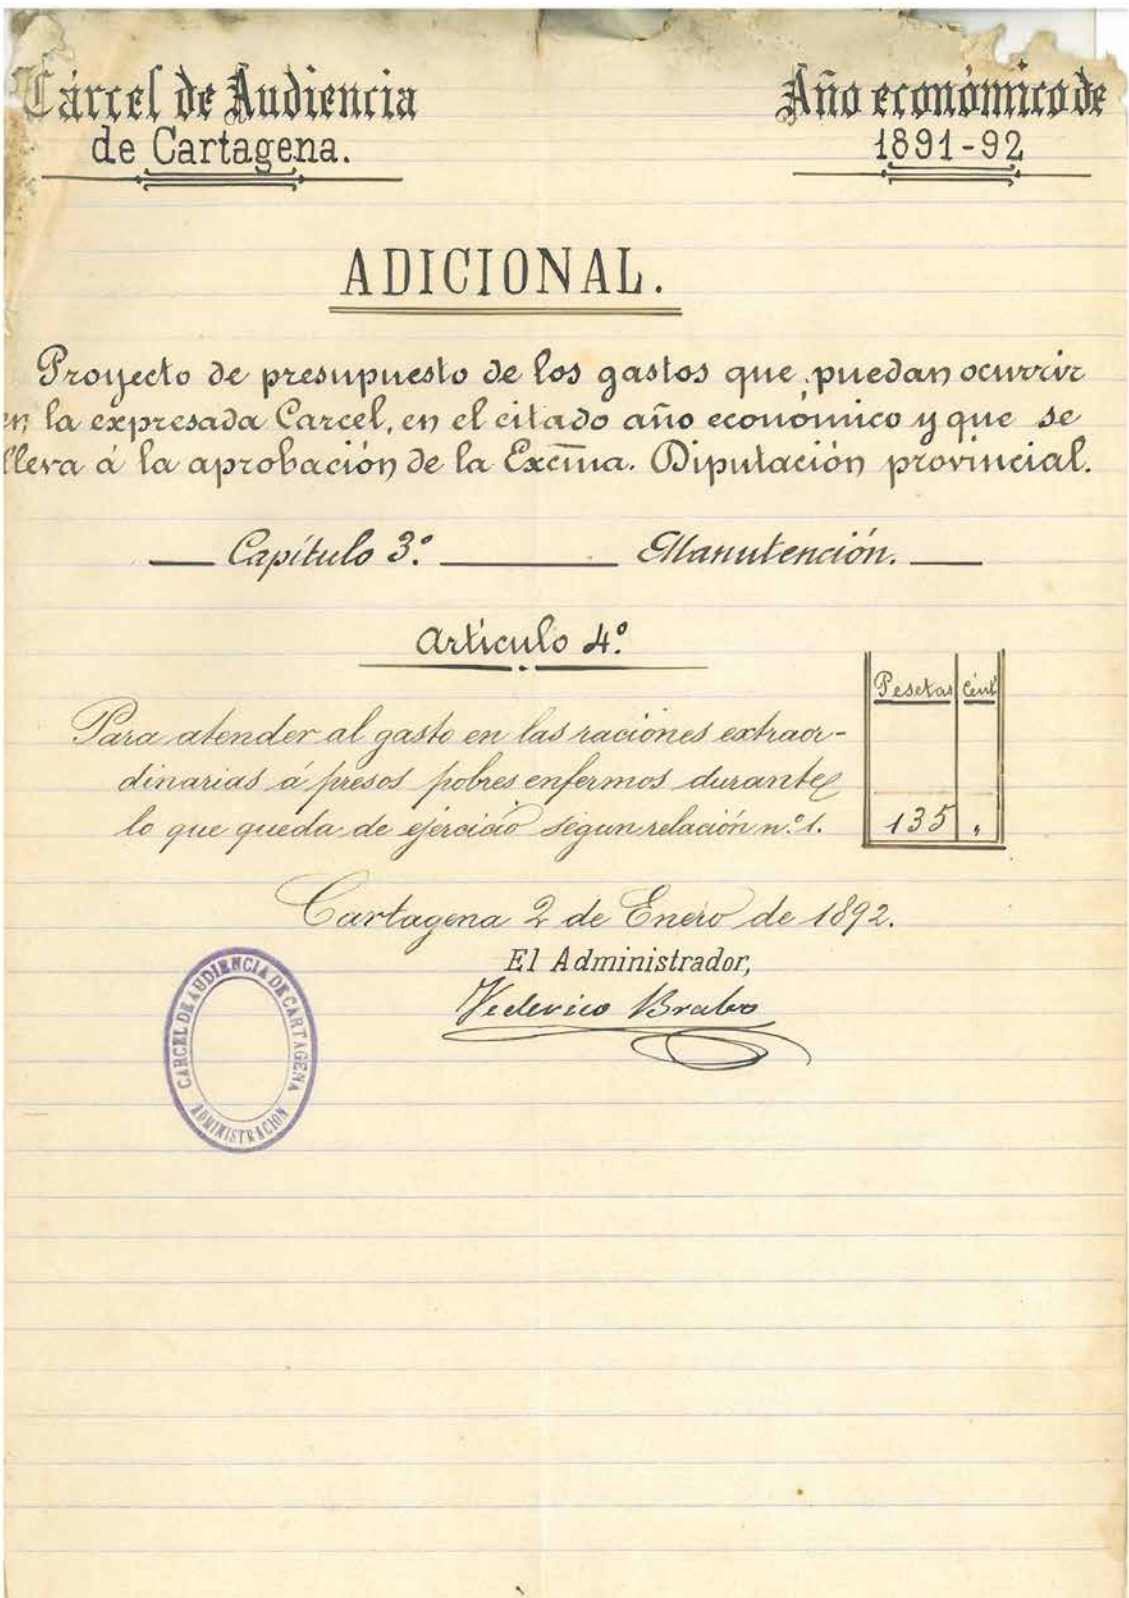 Cárcel de Audiencia
de Cartagena.
Año económico de
1891-92
ADICIONAL.
Proyecto de presupuesto de los gastos que puedan ocurrir
en la expresada Carcel, en el citado año económico y que se
lleva á la aprobación de la Excma. Diputación provincial.
Capítulo 3º. Manutención.
Artículo 4º.
Pesetas Cént
Para atender al gasto en las raciones extraor-
dinarias á presos pobres enfermos durante
lo que queda de ejercicio segun relación n.º 1. 135 "
Cartagena 2 de Enero de 1892.
El Administrador,
Federico Brabo
CARCEL DE AUDIENCIA DE CARTAGENA
ADMINISTRACION